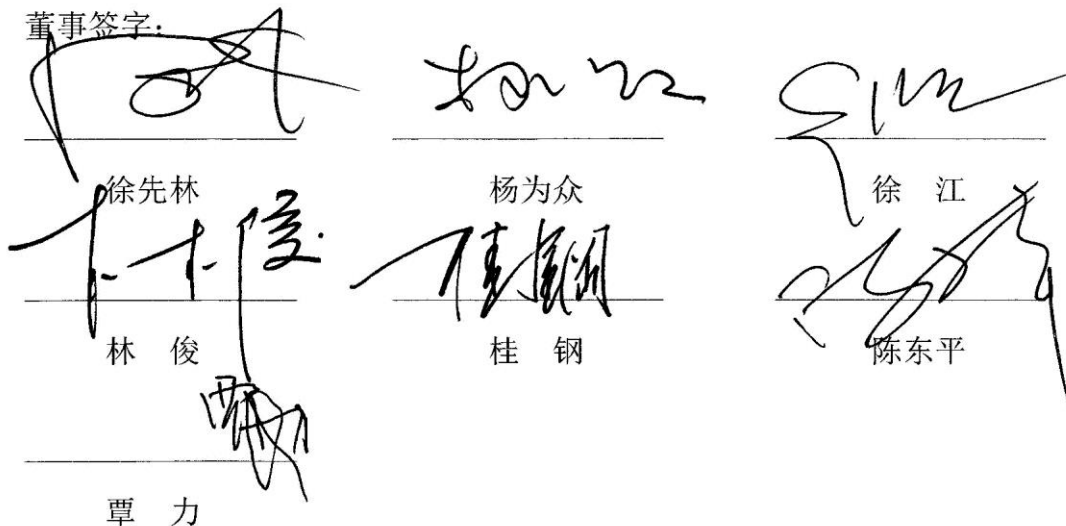 董事签字:
徐先林 杨为众 徐 江
林 俊 桂 钢 陈东平
覃 力